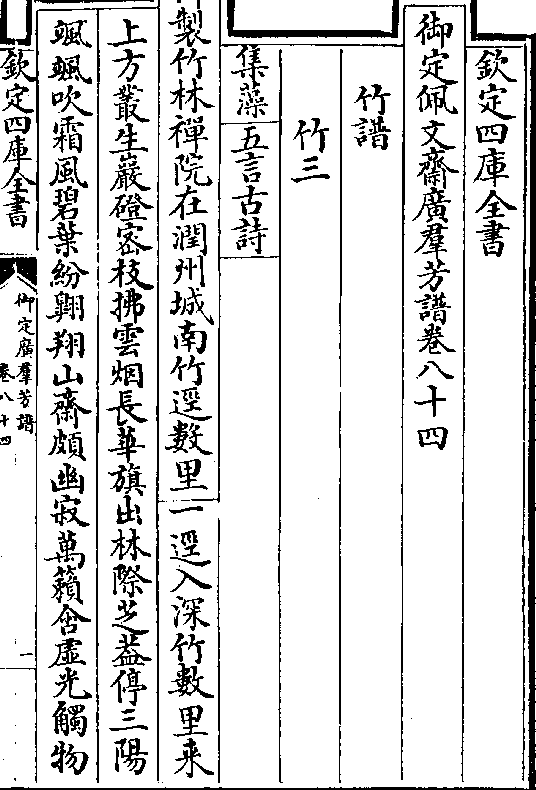 欽定四庫全書
御定佩文齋廣羣芳譜卷八十四
竹譜
竹三
集藻
五言古詩
製竹林禪院在潤州城南竹逕數里一逕入深竹數里来
上方叢生巖磴密枝拂雲烟長華旗出林際芝葢停三陽
颯颯吹霜風碧葉紛翺翔山齋頗幽寂萬籟含虛光觸物
欽定四庫全書
御定廣羣芳譜
卷八十四
一